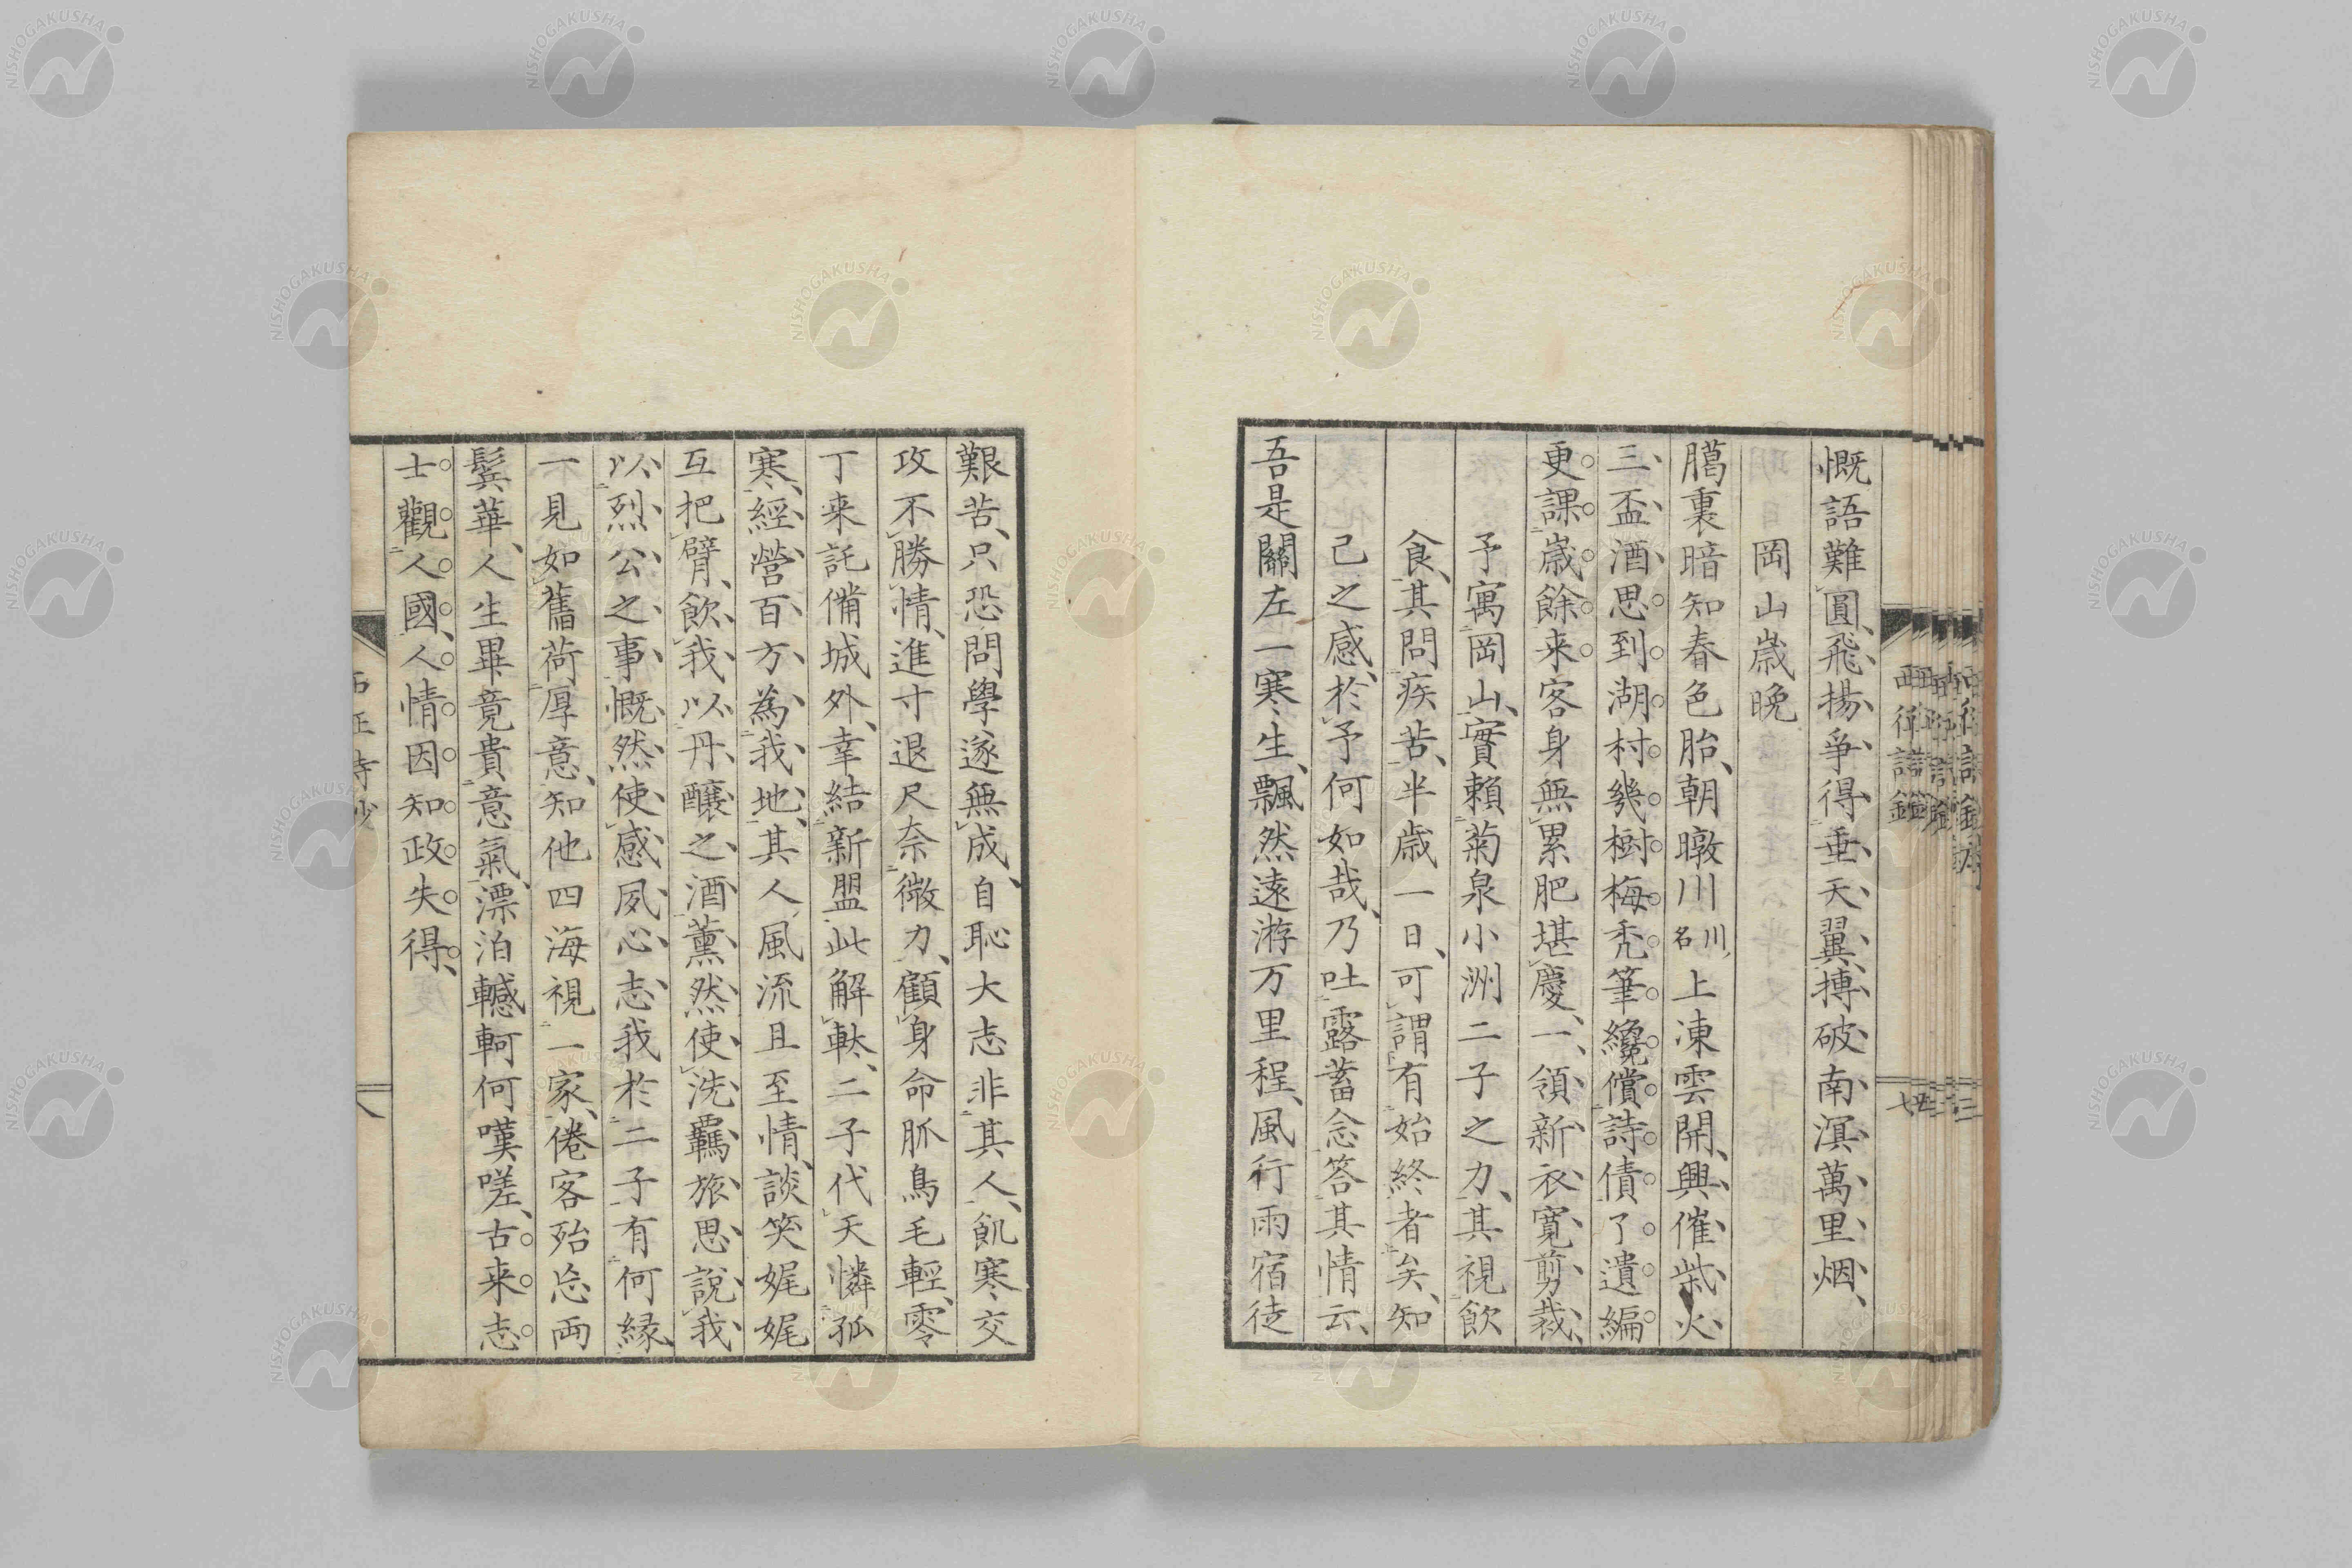 慨語難圓、飛揚爭得垂天翼、搏破南溟萬里烟、
岡山歳晩
臈裏暗知春色胎、朝暾川川名上凍雲開、興催柴火
三盃酒思到湖村幾樹梅禿筆纔償詩債了遺編
更課歳餘来客身無累肥堪慶一、領新衣寛剪裁、
予寓岡山、實賴菊泉小洲二子之力、其視飲
食、其問疾苦、半歳一日、可謂有始終者矣、知
己之感、於予何如哉、乃吐露蓄念答其情云、
吾是關左一寒生、飄然遠游万里程、風行雨宿徒
艱苦、只恐問學遂無成、自恥大志非其人、飢寒交
攻不勝情、進寸退尺奈微力、顧身命脈鳥毛輕、零
丁来託備城外、幸結新盟此解軼、二子代天憐孤
寒、經營百方為我地、其人風流且至情、談笑娓娓
互把臂、飲我以丹釀之酒薫然使洗羈旅思、說我
以烈公之事慨然使感夙心志我於二子有何縁
一見如舊荷厚意、知他四海視一家、倦客殆忘両
鬂華、人生畢竟貴意氣、漂泊轗軻何嘆嗟、古来志
士觀人國、人情因知政失得、
西征詩鈔
八
NISHOGAKUSHA